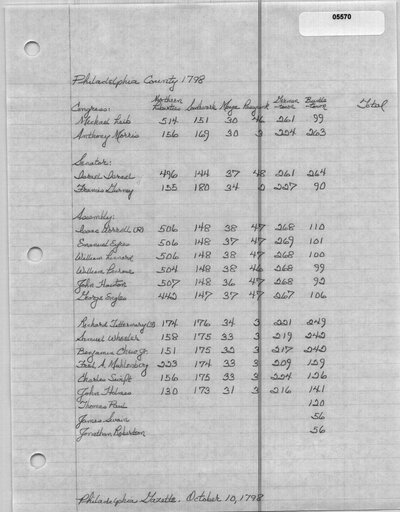 05570
Philadelphia County 1798
Congress: Northern Liberties Southwark Moya Passyunk German -town Bustle -town Total
Michael Leib 514 151 30 46 261 99
Anthony Morris 156 169 30 3 224 263
Senator:
496 144 37 48 261 264
Francis Gurney 155 180 34 2 227 90
Assembly:
Isaac Worrell (R) 506 148 38 47 268 110
Emanuel Eyre 506 148 37 47 269 101
William Linnard 506 148 38 47 268 100
William Penrose 504 148 38 46 268 99
John Huston 507 148 36 47 268 92
George Ingles 442 147 37 47 267 106
Richard Tittermary (F) 174 176 34 3 221 249
Samuel Wheeler 158 175 33 3 219 242
Benjamin Chew Jr. 151 175 32 3 217 242
Fred. A. Muhlenberg 223 174 33 3 209 129
Charles Swift 156 175 33 3 224 126
John Holmes 130 173 31 3 216 141
Thomas Paul 120
James Swain 56
Jonathan Robertson 56
Philadelphia Gazette. October 10, 1798